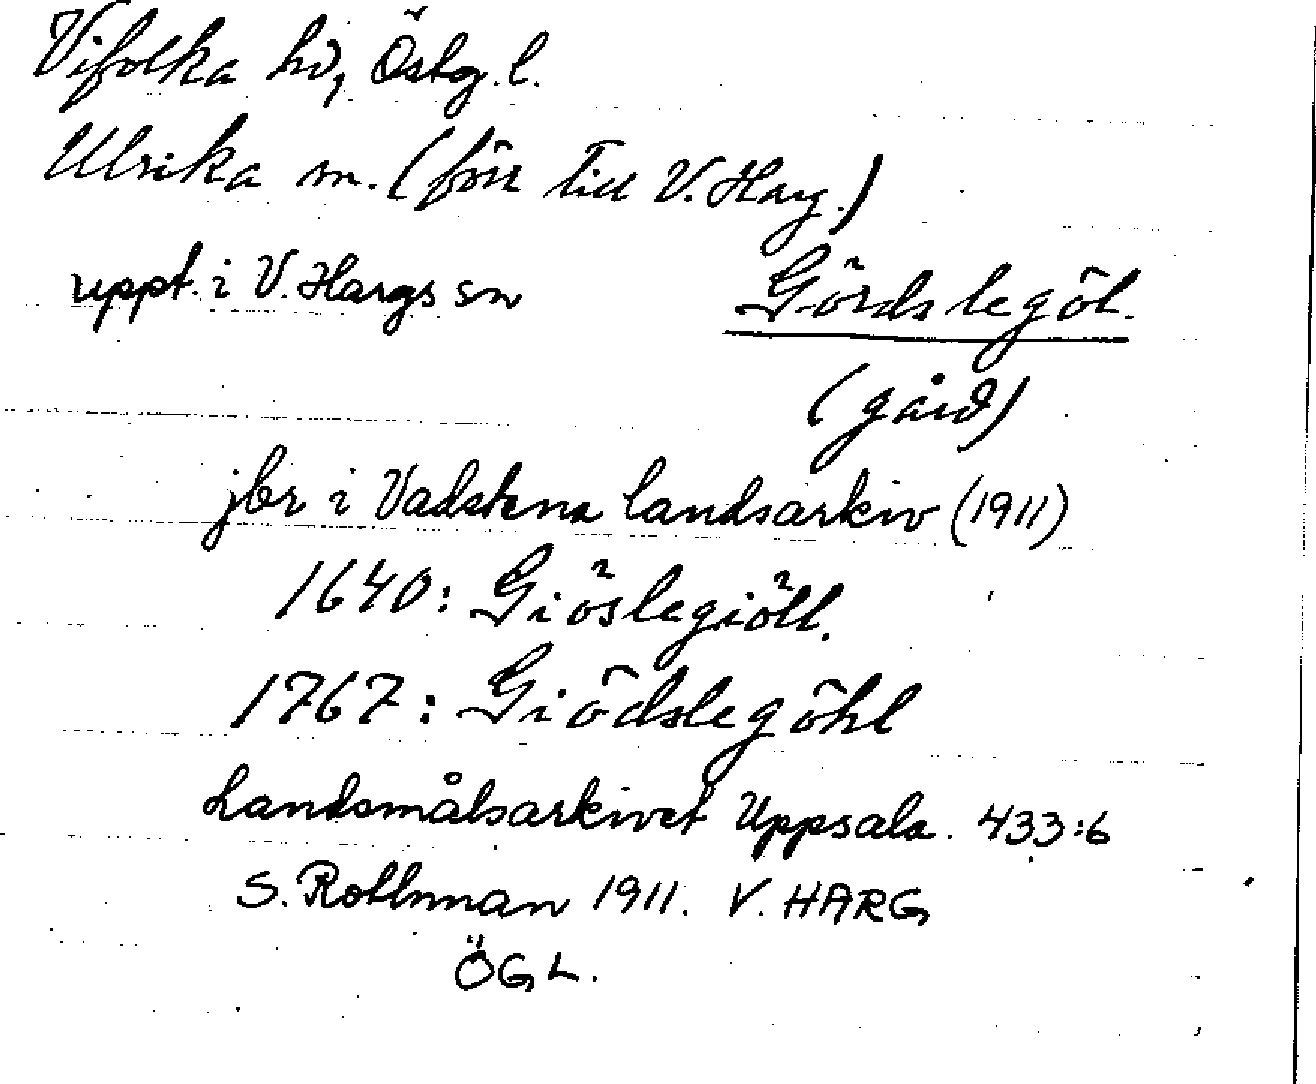 Vifolka hd, Östg. l.
Ulrika sn. (förr till V. Harg.)
uppt. i V. Hargs sn
Gördslegöl.
(gård)
jbr i Vadstena landsarkiv (1911)
1640: Giöslegiöll.
1767: Giödslegöhl
Landsmålsarkivet Uppsala. 433:6
S. Rothman 1911. V. HARG
ÖGL.